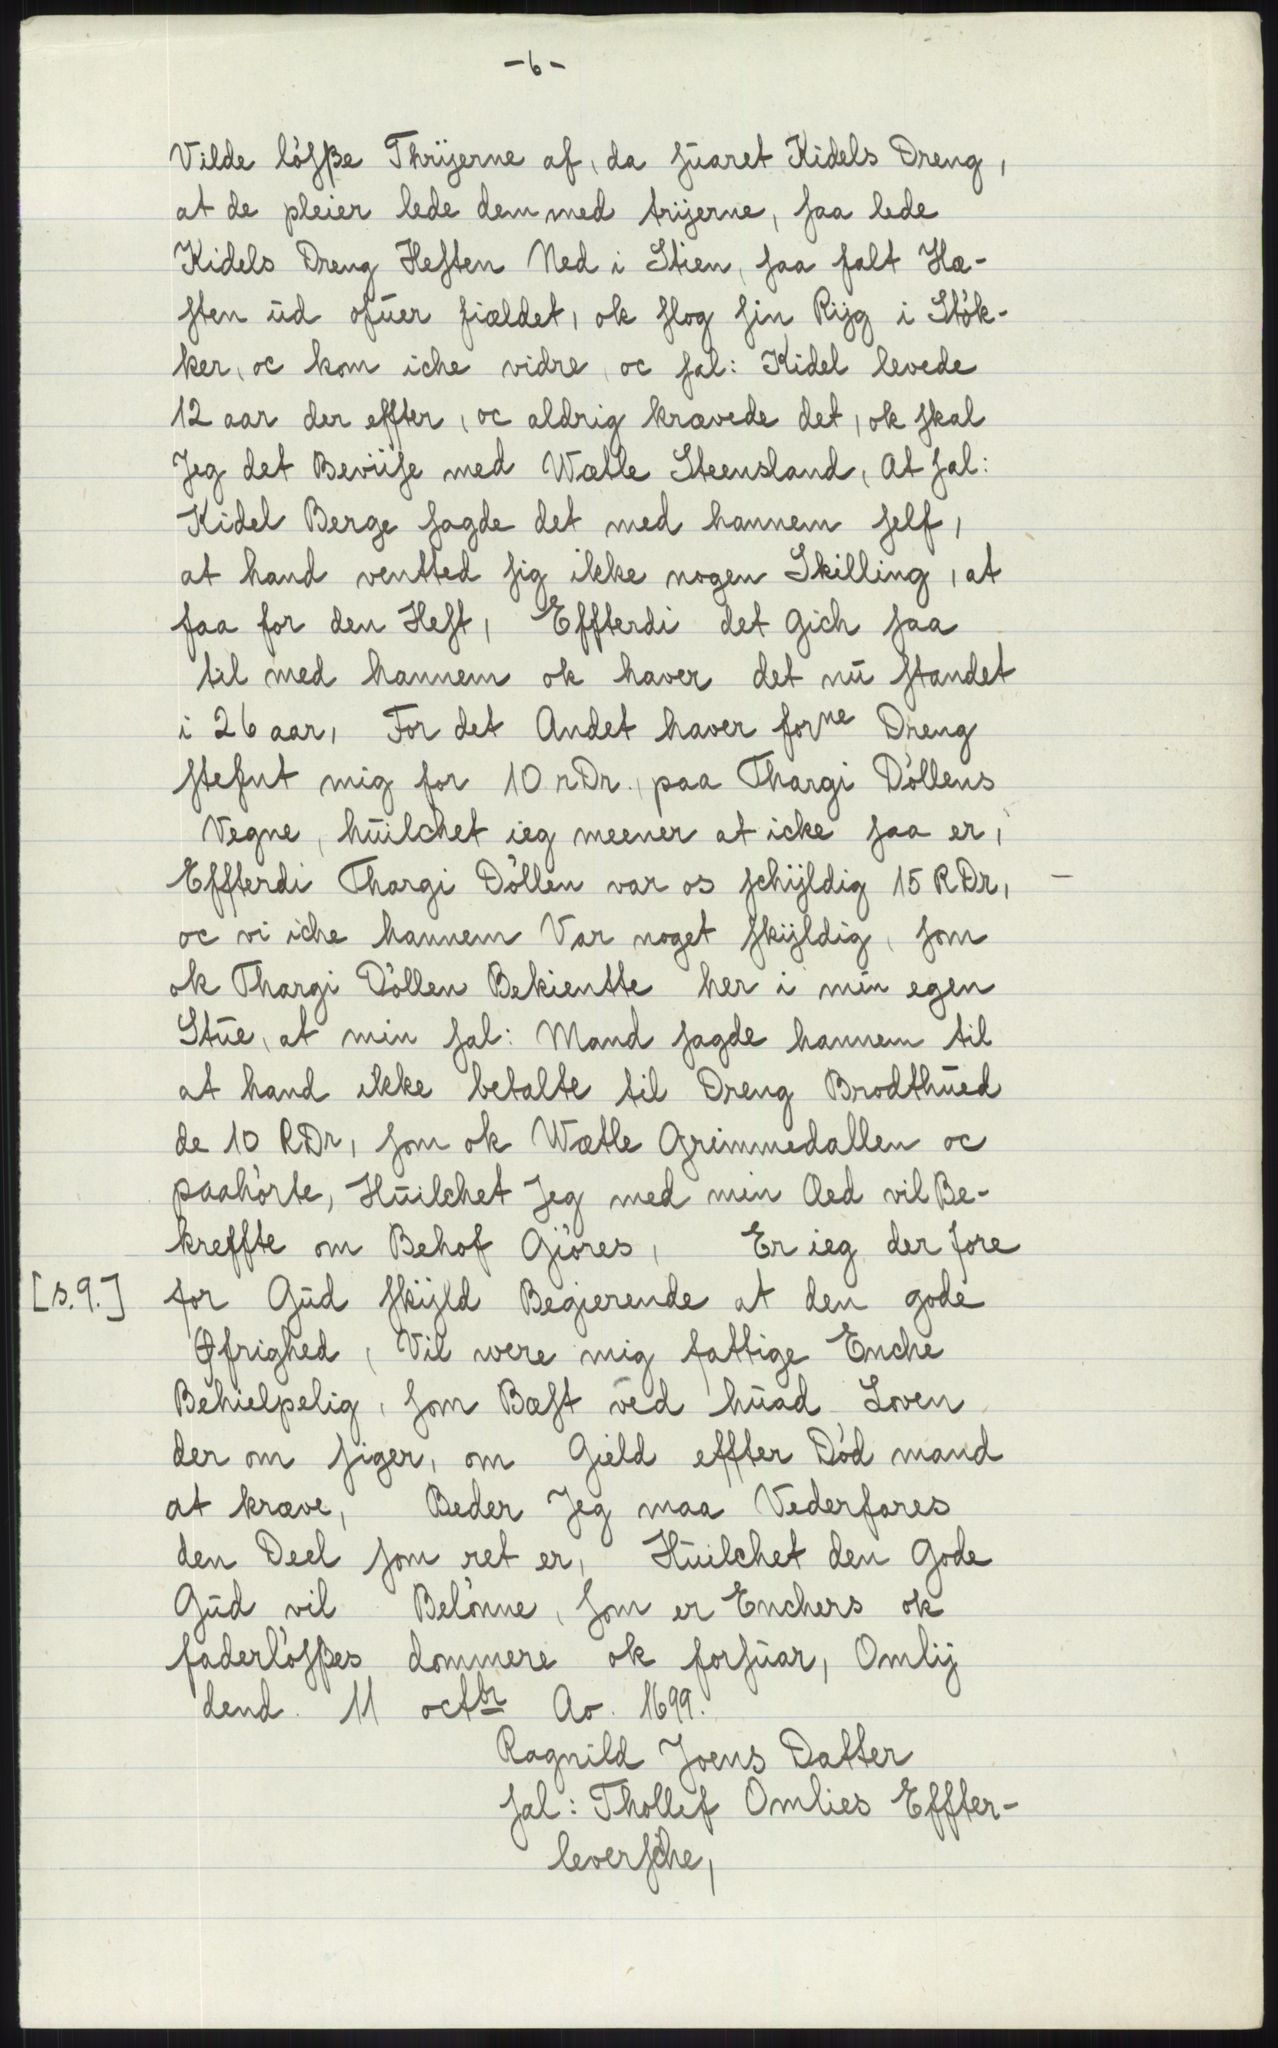 -6-
Vilde løsße Thrÿerne af, da suaret Kidels Dreng,
at de pleier lede dem med trÿerne, saa lede
Kidels Dreng Hesten Ned i Stien, saa falt Hæ-
sten ud ofuer fiældet, ok slog sin Rÿg i Støk-
ker, oc kom iche vidre, oc sal: Kidel levede
12 aar der effter, oc aldrig krævede det, ok skal
Jeg det Beviise med Wætle Steensland, At sal:
Kidel Berge sagde det med hannem self,
at hand ventted sig ikke nogen Skilling, at
faa for den Hest, Effterdi det Gich saa
til med hannem ok haver det nu standet
i 26 aar, For det Andet haver forne Dreng
stefnt mig for 10 rDr, paa Thargi Döllens
Vegne, huilchet ieg meener at icke saa er,
Effterdi Thargi Döllen var os schÿldig 15 RDr, -
oc vi iche hannem Var noget skÿldig, som
ok Thargi Döllen Bekientte her i min egen
Stue, at min sal: Mand sagde hannem til
at hand ikke betalte til Dreng Brodthued
de 10 RDr, som ok Wætle Grimmedallen oc
paahörte, Huilchet Jeg med min Aed vil Be-
kreffte om Behof Giöres, Er ieg der fore
[s. 9.] for Gud skÿld Begierende at den gode
Øfrighed, Vil were mig fattige Enche
Behielpelig, som Bæst ved huad Loven
der om siger, om Gield effter Död mand
at kræve, Beder Jeg maa Vederfares
den Deel som ret er, Huilchet den Gode
Gud vil Belönne, som er Enchers ok
faderlösßes dommere ok forsuar, Omlÿ
dend. 11 octbr Ao. 1699.
Ragnild Joens Datter
sal: Thollef Omlies Effter-
leversche,